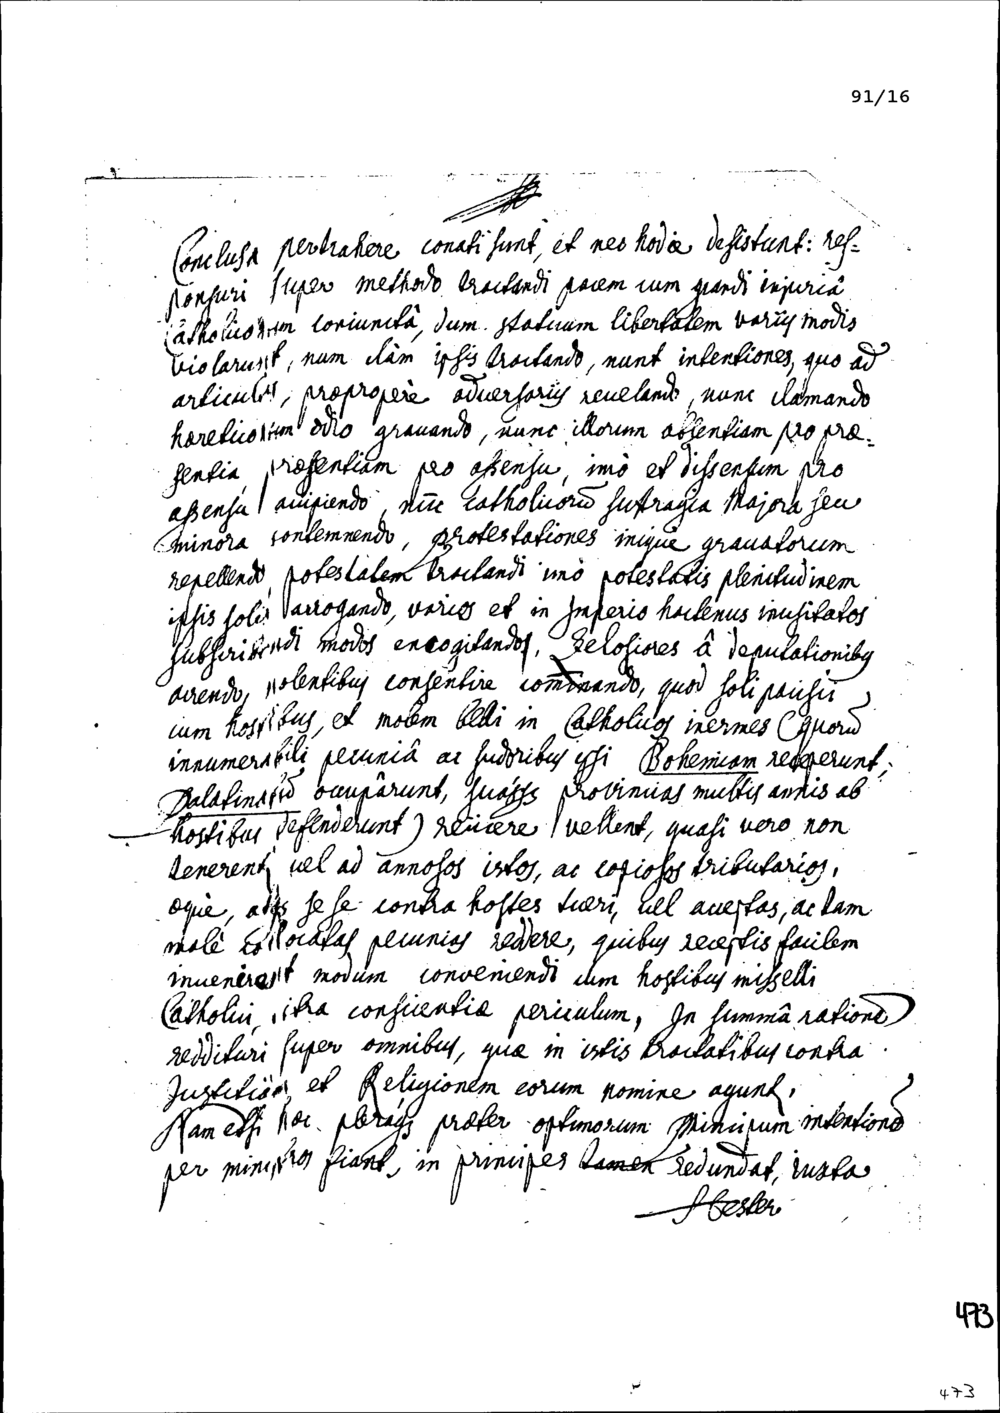 91/16
Conclusa pertrahere conati sunt, et nec hodie desistunt: res=
ponsuri super methodo tractandi pacem cum grandi injuriâ
Catholicorum coniunctâ, dum statuum libertatem varijs modis
violarunt, nunc clàm ipsis tractando, nunc intentiones, quo ad
articulos, præproperè adversarijs revelando, nunc clamando
hæreticorum odio gravando, nunc illorum absentiam pro præ=
sentia, præsentiam pro assensu, imò et dissensum pro
assensu accipiendo, nūc Catholicorū suffragia majora seu
minora contemnendo, protestationes iniquè gravatorum
repellendo, potestatem tractandi imò potestatis plenitudinem
ipsis solis arrogando, varios et in Imperio hactenus inusitatos
subscribendi modos excogitandos, Zelosiores â deputationibus
arcendo, nolentibus consentire comminando, quod soli pacisci
cum hostibus, et molem belli in Catholicos inermes (quorū
innumerabili pecuniâ ac sudoribus ipsi Bohemiam receperunt,
Palatinatū occupârunt, suasqs provincias multis annis ab
hostibus defenderunt) reijcere vellent, quasi vero non
tenerent, vel ad annosos istos, ac copiosos tributarios,
æquè, ac se se contra hostes tueri, vel acceptas, ac tam
malè collocatas pecunias reddere, quibus receptis facilem
invenirent modum conveniendi cum hostibus misselli
Catholici, citra conscientiæ periculum, In summâ rationē
reddituri super omnibus, quæ in istis tractatibus contra
Justitiam et Religionem eorum nomine agunt,
Nam etsi hæc pleraqs præter optimorum Principum intentionē
per ministros fiant, in principes tamen redundat, iuxta
473
473